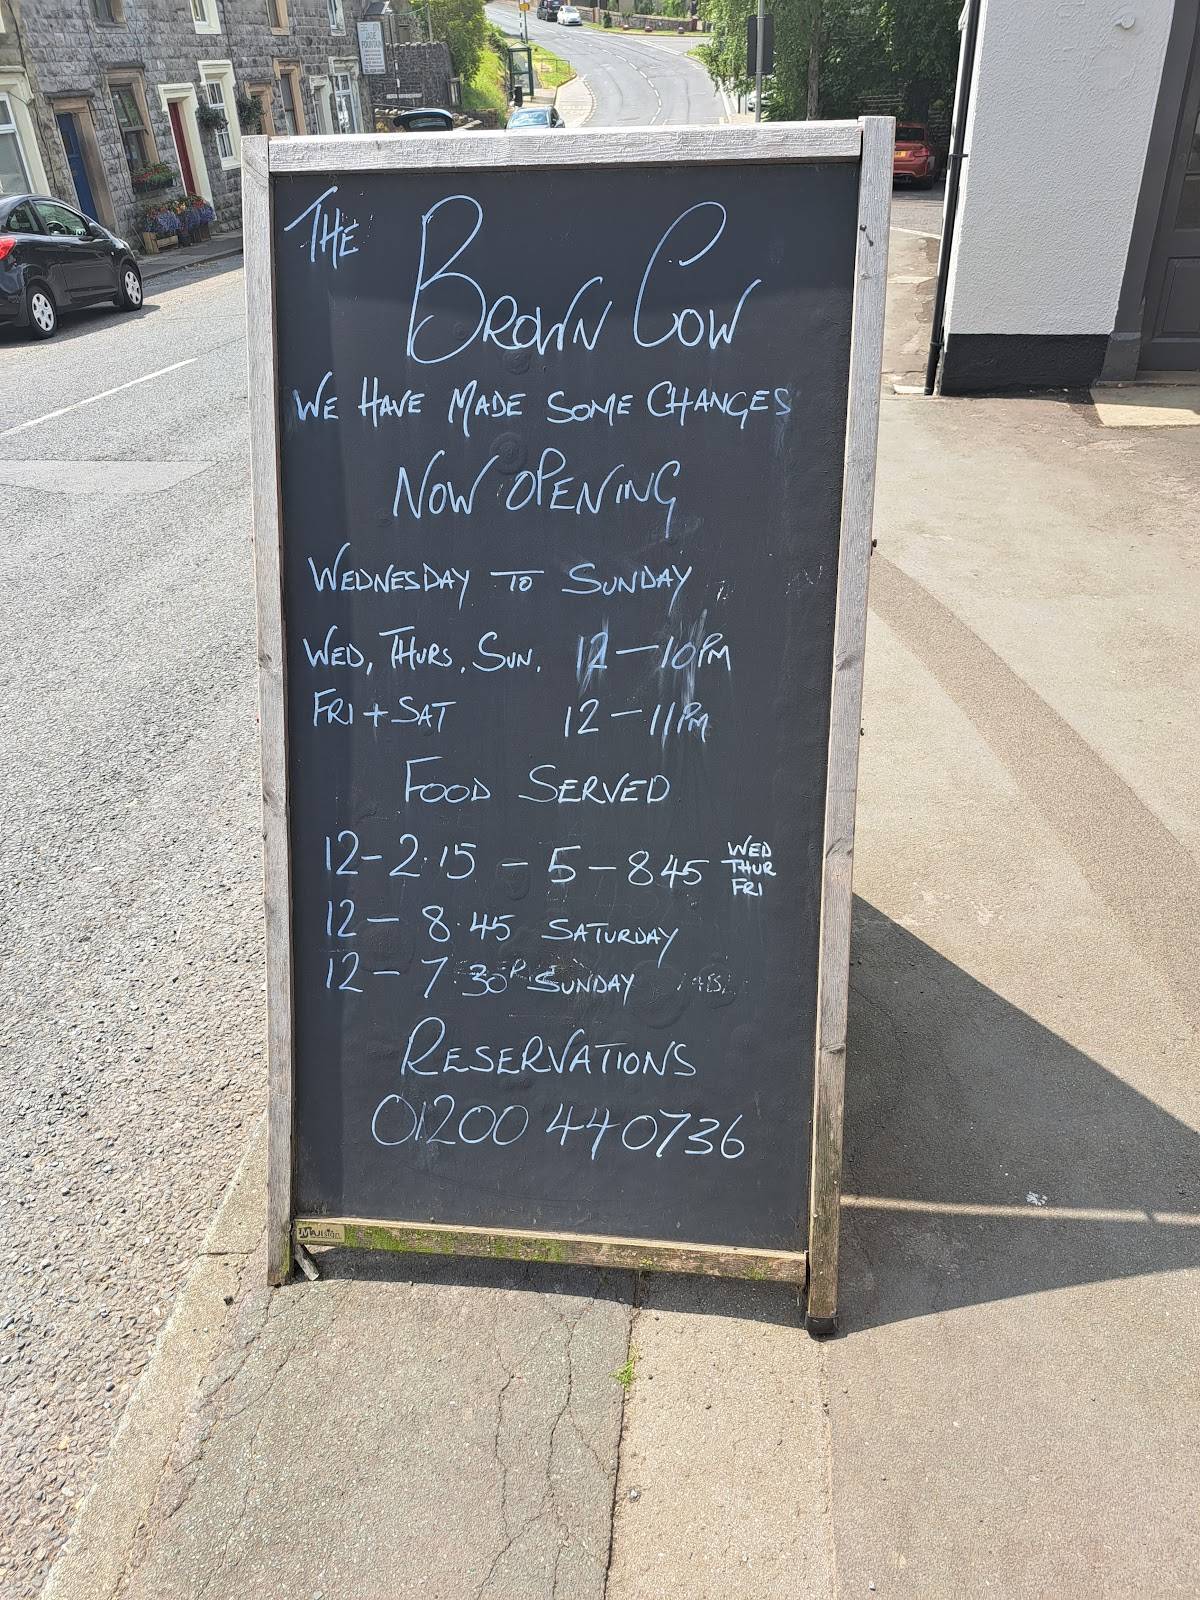 JADE
FOUNTAIN
THE
BROWN COW
WE HAVE MADE SOME CHANGES
NOW OPENING
WEDNESDAY TO SUNDAY
WED, THURS, SUN. 12-10PM
FRI + SAT 12-11PM
FOOD SERVED
12-2.15 - 5-8.45 WED
THUR
FRI
12- 8.45 SATURDAY
12- 7.30P SUNDAY
RESERVATIONS
01200 440736